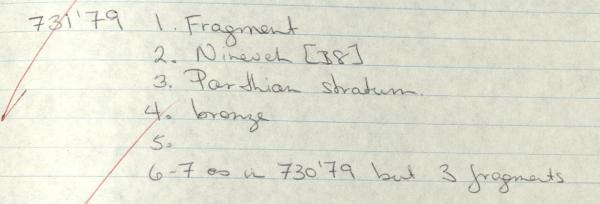 731'79 1. Fragment
2. Nineveh [38]
3. Parthian stratum.
4. bronze
5.
6-7 as in 730'79 but 3 fragments